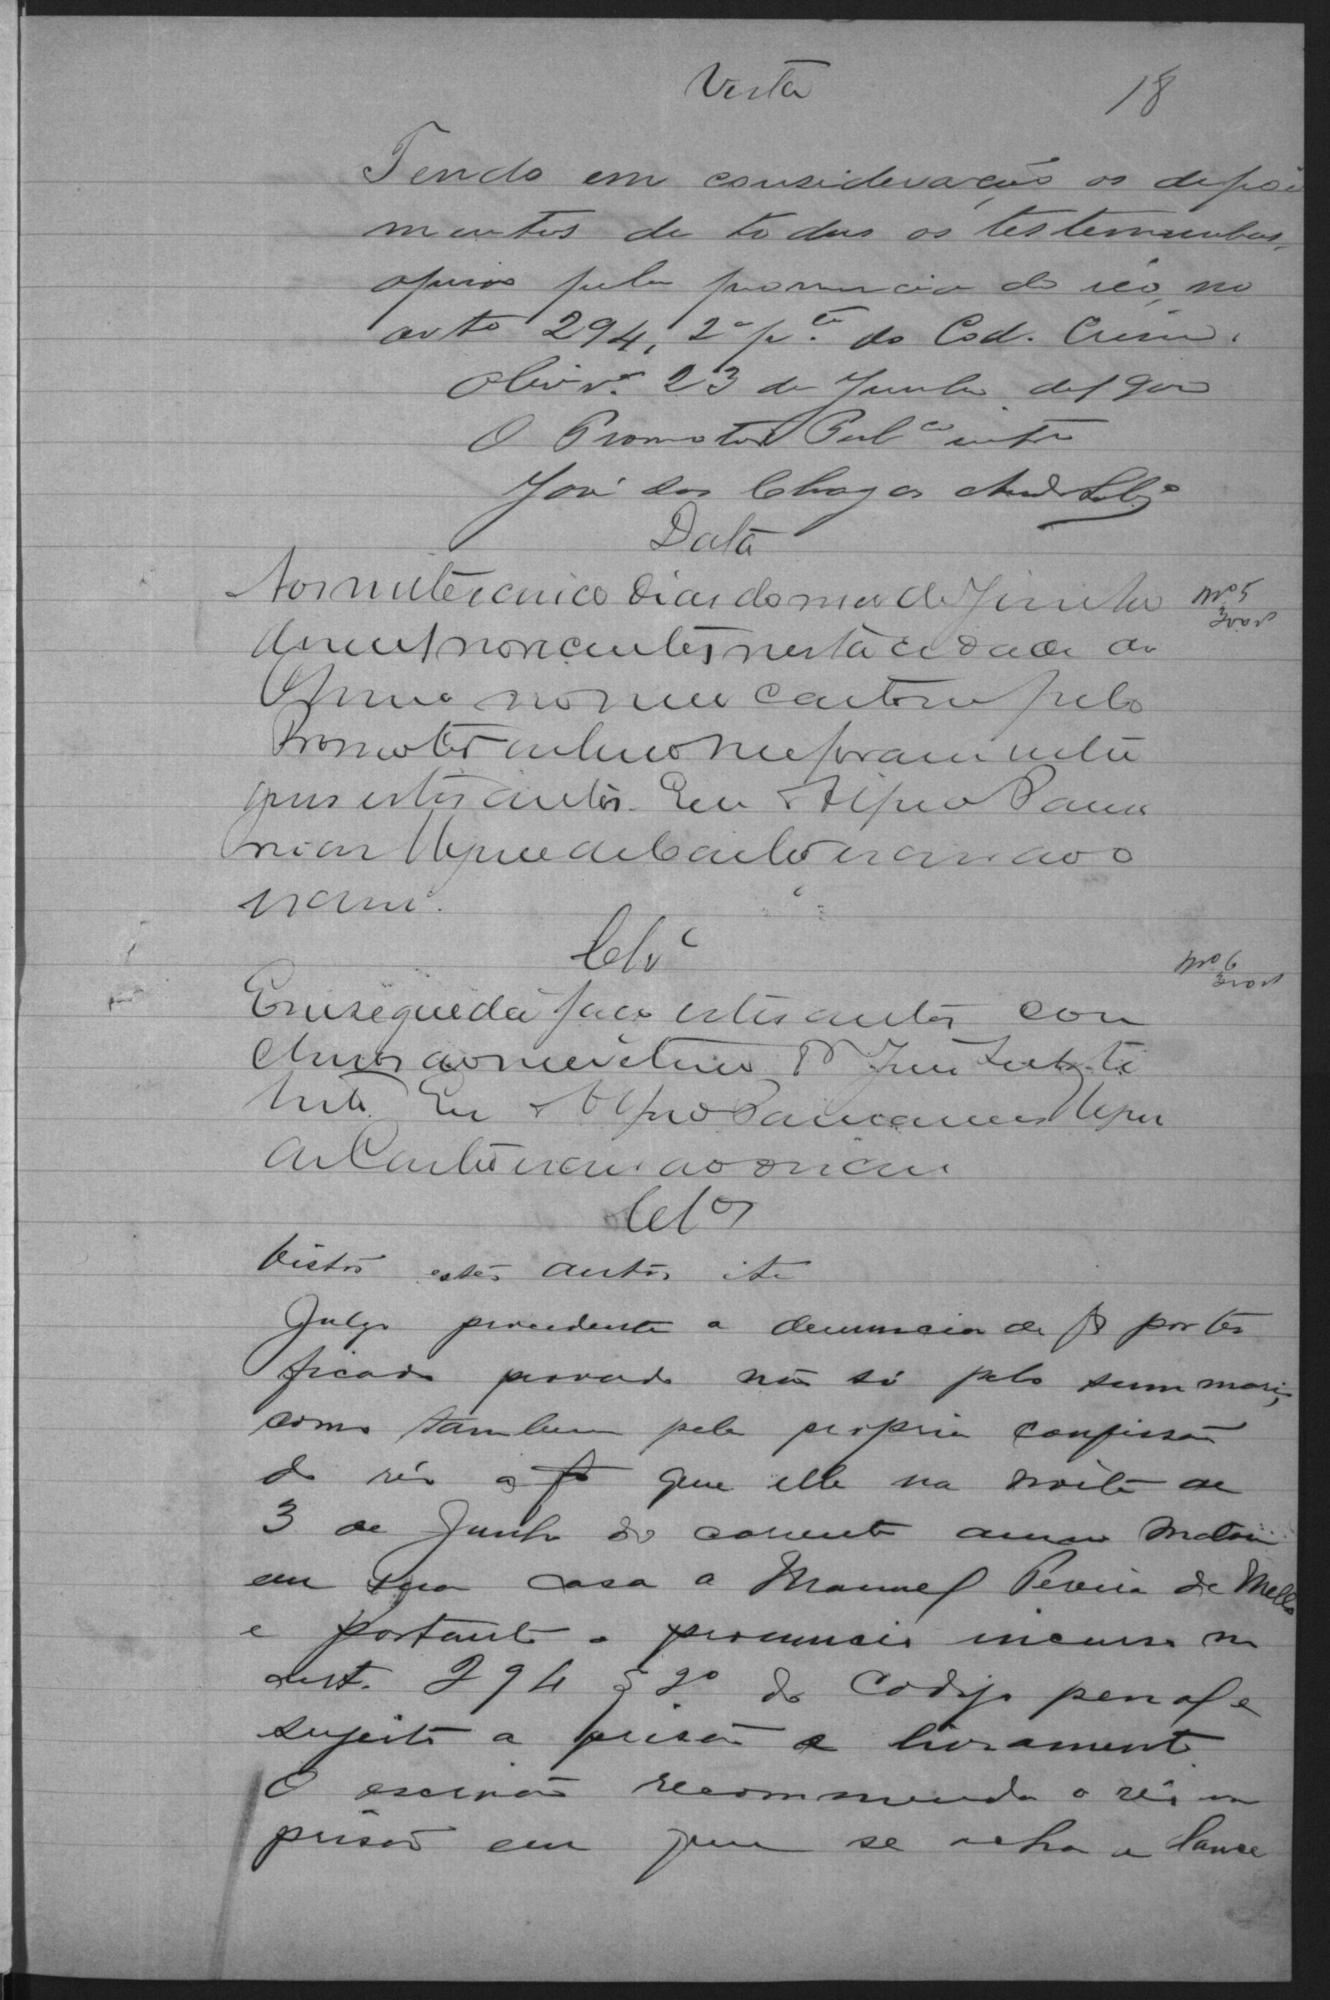 Vista
18
Tendo em consideração os depoi
mentos de todas as testemunhas,
opino pela pronuncia do réo, no
arto 294, 2ª pte do Cod. Crim.
Olivrª 23 de Junho de 1900
O Promotor Publco intº
José das Chagas
Data
Aos vinte e cinco dias do mez de Junho
de mil novecentos nesta cidade de
no meu cartorio pelo
Promotor interino me foram entre
gues estes autos. Eu
escrivão o
escrevi.
nº 5
300 rs
Clsº
nº 6
300 rs
Em seguida faço estes autos con
clusos ao meretissimo Dr Juiz Substi
tuto. Eu
escrivão o escrevi
Clos
Vistos estes autos etc
Julgo procedente a denuncia de f por ter
ficado provado não só pelo summario,
como tambem pela propria confissão
do réo a f que elle na noite de
3 de Junho do corrente anno matou
em sua casa a Manuel Pereira de Mello
e portanto o pronuncio incurso no
art. 294 § 2º do Codigo penal e
sujeito a prisão e livramento
O escrivão recommende o réo na
prisão em que se acha e lance